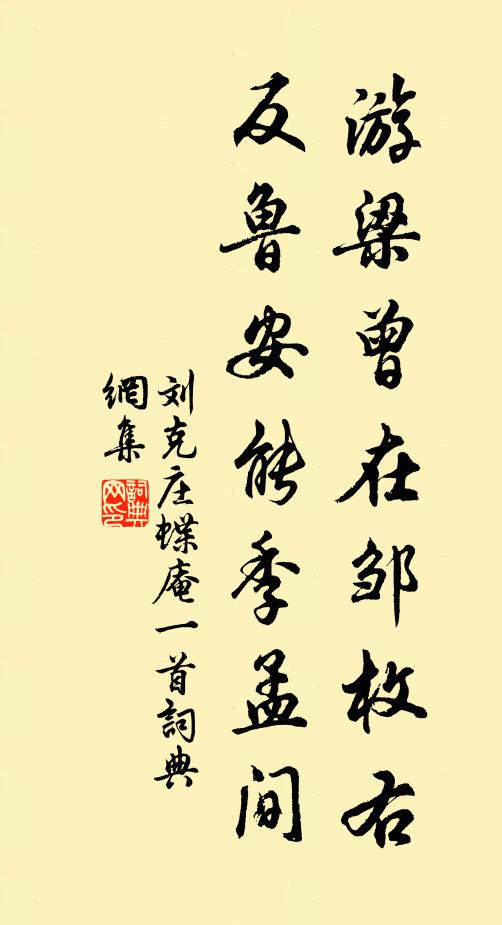 游梁曾在邹枚右
反鲁安能季孟间
刘克庄蝶庵一首詞典
網集
詞典
网印